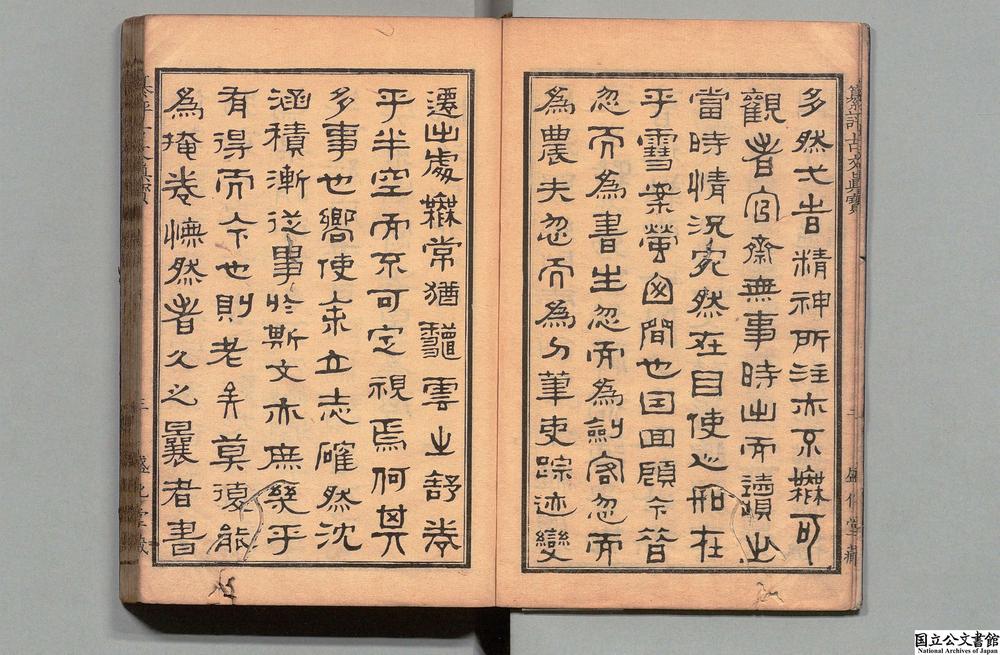 纂評古文眞寳 二 盛化堂藏
多然昔精神所注亦不無可
觀者官齋無事時出而讀之
當時情況宛然在目使心在
乎雪案螢囱間也因回顧今昔
忽而為書生忽而為劍客忽而
為農夫忽而為刀筆吏踪迹變
遷出處無常猶雲之舒卷
乎半空而不可定視焉何其
多事也嚮使余立志確然沈
涵積漸從事於斯文亦庶幾乎
有得而今也則老矣莫復能
為掩卷憮然者久之曩者書
三
国立公文書館
National Archives of Japan